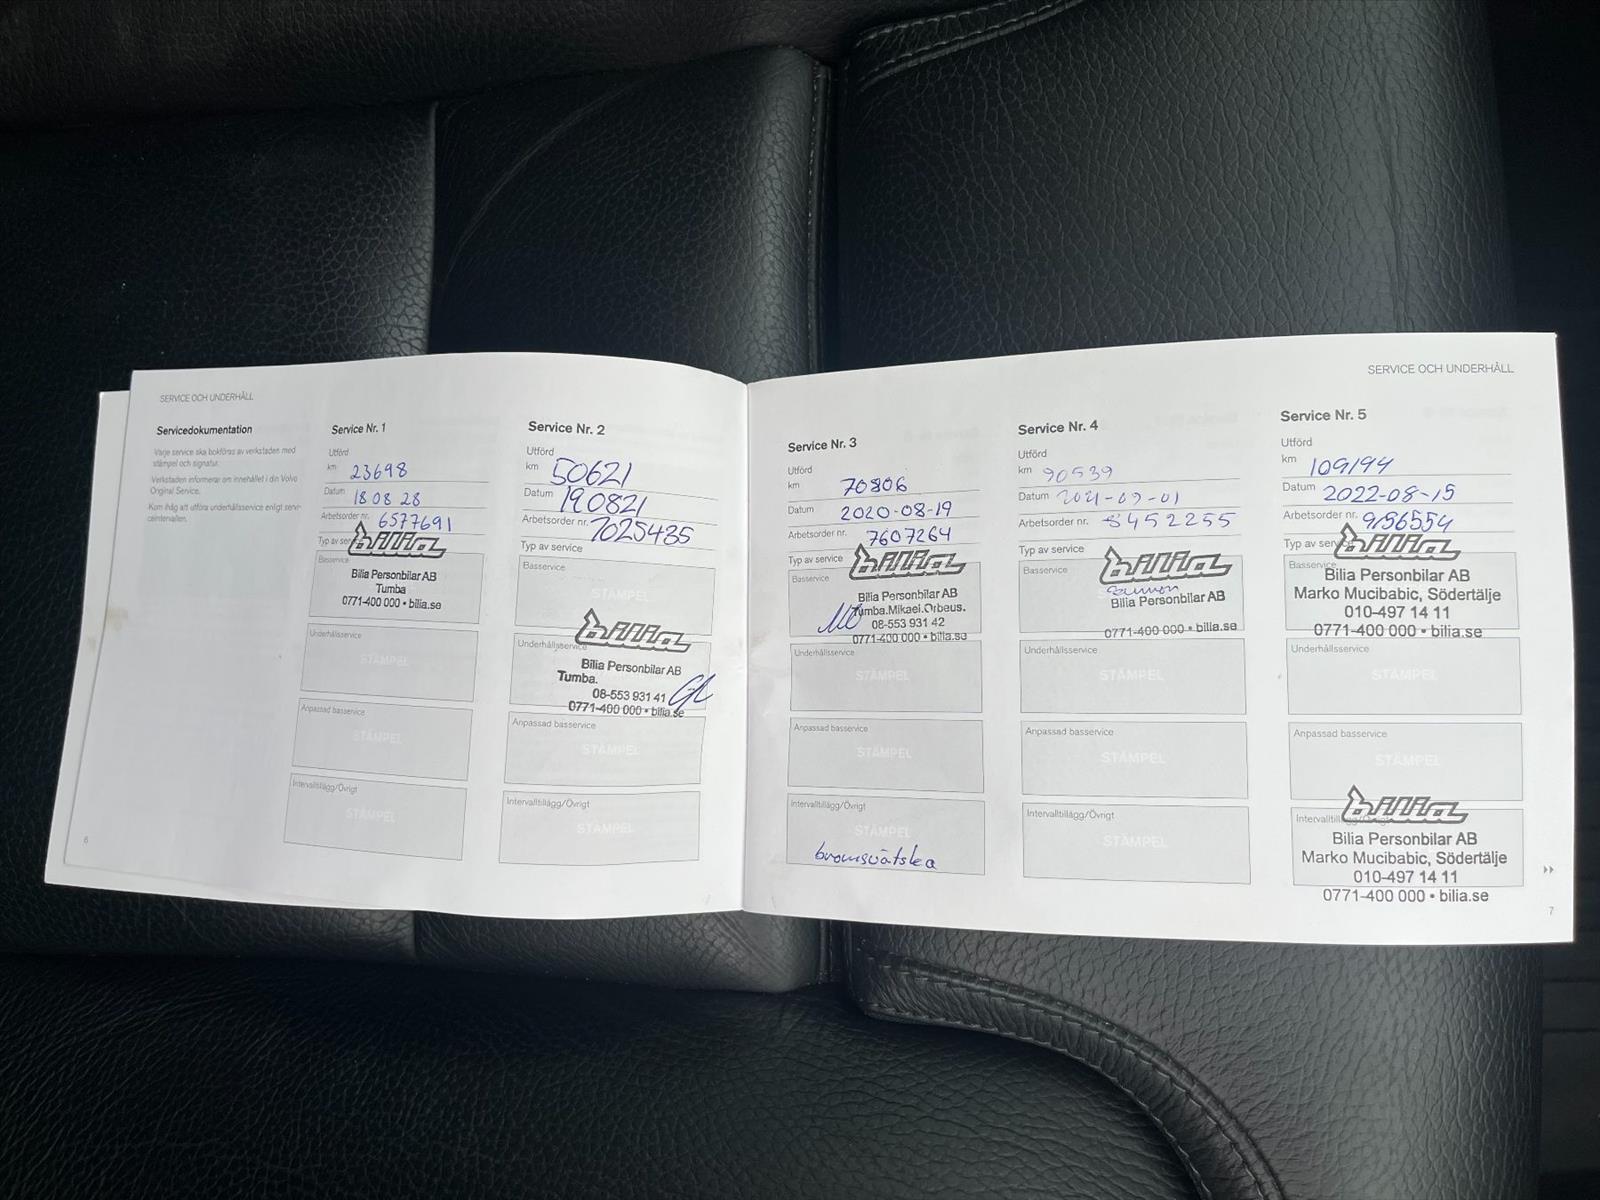 SERVICE OCH UNDERHÅLL
Servicedokumentation
Varje service ska bokföras av verkstaden med
stämpel och signatur.
Verkstaden informerar om innehållet i din Volvo
Original Service.
Kom ihåg att utföra underhållsservice enligt serv-
iceintervallen.
6
Service Nr. 1
Utförd
km 23698
Datum 18 08 28
Arbetsorder nr. 6577691
Typ av
Basservice
bilia
Bilia Personbilar AB
Tumba
0771-400 000 • bilia.se
Underhållsservice
STÄMPEL
Anpassad basservice
STÄMPEL
Intervalltillägg/Övrigt
STÄMPEL
Service Nr. 2
Utförd
km 50621
Datum 190821
Arbetsorder nr. 7025435
Typ av service
Basservice
STÄMPEL
Underhållsservice
bilia
Bilia Personbilar AB
Tumba.
08-553 931 41
0771-400 000 • bilia.se
Anpassad basservice
STÄMPEL
Intervalltillägg/Övrigt
STÄMPEL
SERVICE OCH UNDERHÅLL
Service Nr. 3
Utförd
km 70806
Datum 2020-08-19
Arbetsorder nr. 7607264
Typ av service
Basservice
bilia
Bilia Personbilar AB
Tumba.Mikael.Orbeus.
08-553 931 42
0771-400 000 • bilia.se
Underhållsservice
STÄMPEL
Anpassad basservice
STÄMPEL
Intervalltillägg/Övrigt
STÄMPEL
bromsvätska
Service Nr. 4
Utförd
km 90539
Datum 2021-09-01
Arbetsorder nr. 8452255
Typ av service
Basservice
bilia
Bilia Personbilar AB
0771-400 000 • bilia.se
Underhållsservice
STÄMPEL
Anpassad basservice
STÄMPEL
Intervalltillägg/Övrigt
STÄMPEL
Service Nr. 5
Utförd
km 109194
Datum 2022-08-15
Arbetsorder nr. 9156554
Typ av
Basservice
bilia
Bilia Personbilar AB
Marko Mucibabic, Södertälje
010-497 14 11
0771-400 000 • bilia.se
Underhållsservice
STÄMPEL
Anpassad basservice
STÄMPEL
bilia
Bilia Personbilar AB
Marko Mucibabic, Södertälje
010-497 14 11
0771-400 000 • bilia.se
7